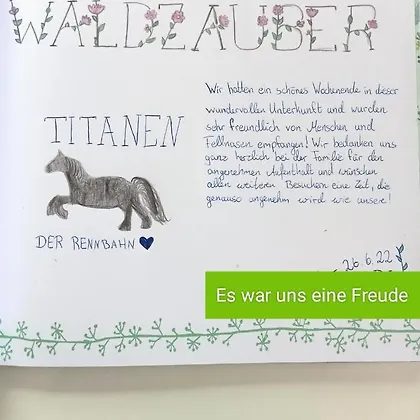 WALDZAUBER
Wir hatten ein schönes Wochenende in dieser
wundervollen Unterkunft und wurden
sehr freundlich von Menschen und
Fellnasen empfangen! Wir bedanken uns
ganz herzlich bei der Familie für den
angenehmen Aufenthalt und wünschen
allen weiteren Besuchern eine Zeit, die
genauso angenehm wird wie unsere!
TITANEN
DER RENNBAHN
26.6.22
Es war uns eine Freude